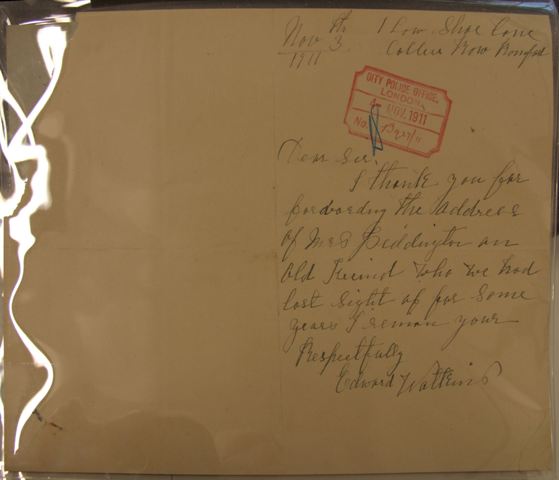 Nov 3th 1 Low Shoe Lane
1911 Collier Row Romford
CITY POLICE OFFICE,
LONDON.
NOV. 1911
No.
Dear Sir.
I thank you for
forwarding the Address
of Mrs Biddington an
Old Freind who we had
lost sight of for some
years I reman your
Respectfully
Edward Watkins